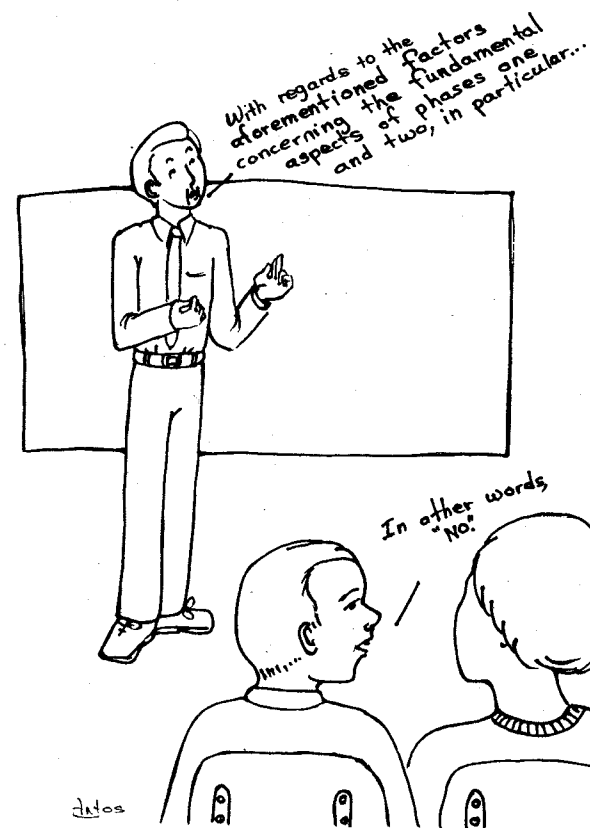 With regards to the
aforementioned factors
concerning the fundamental
aspects of phases one
and two, in particular...
In other words,
"NO."